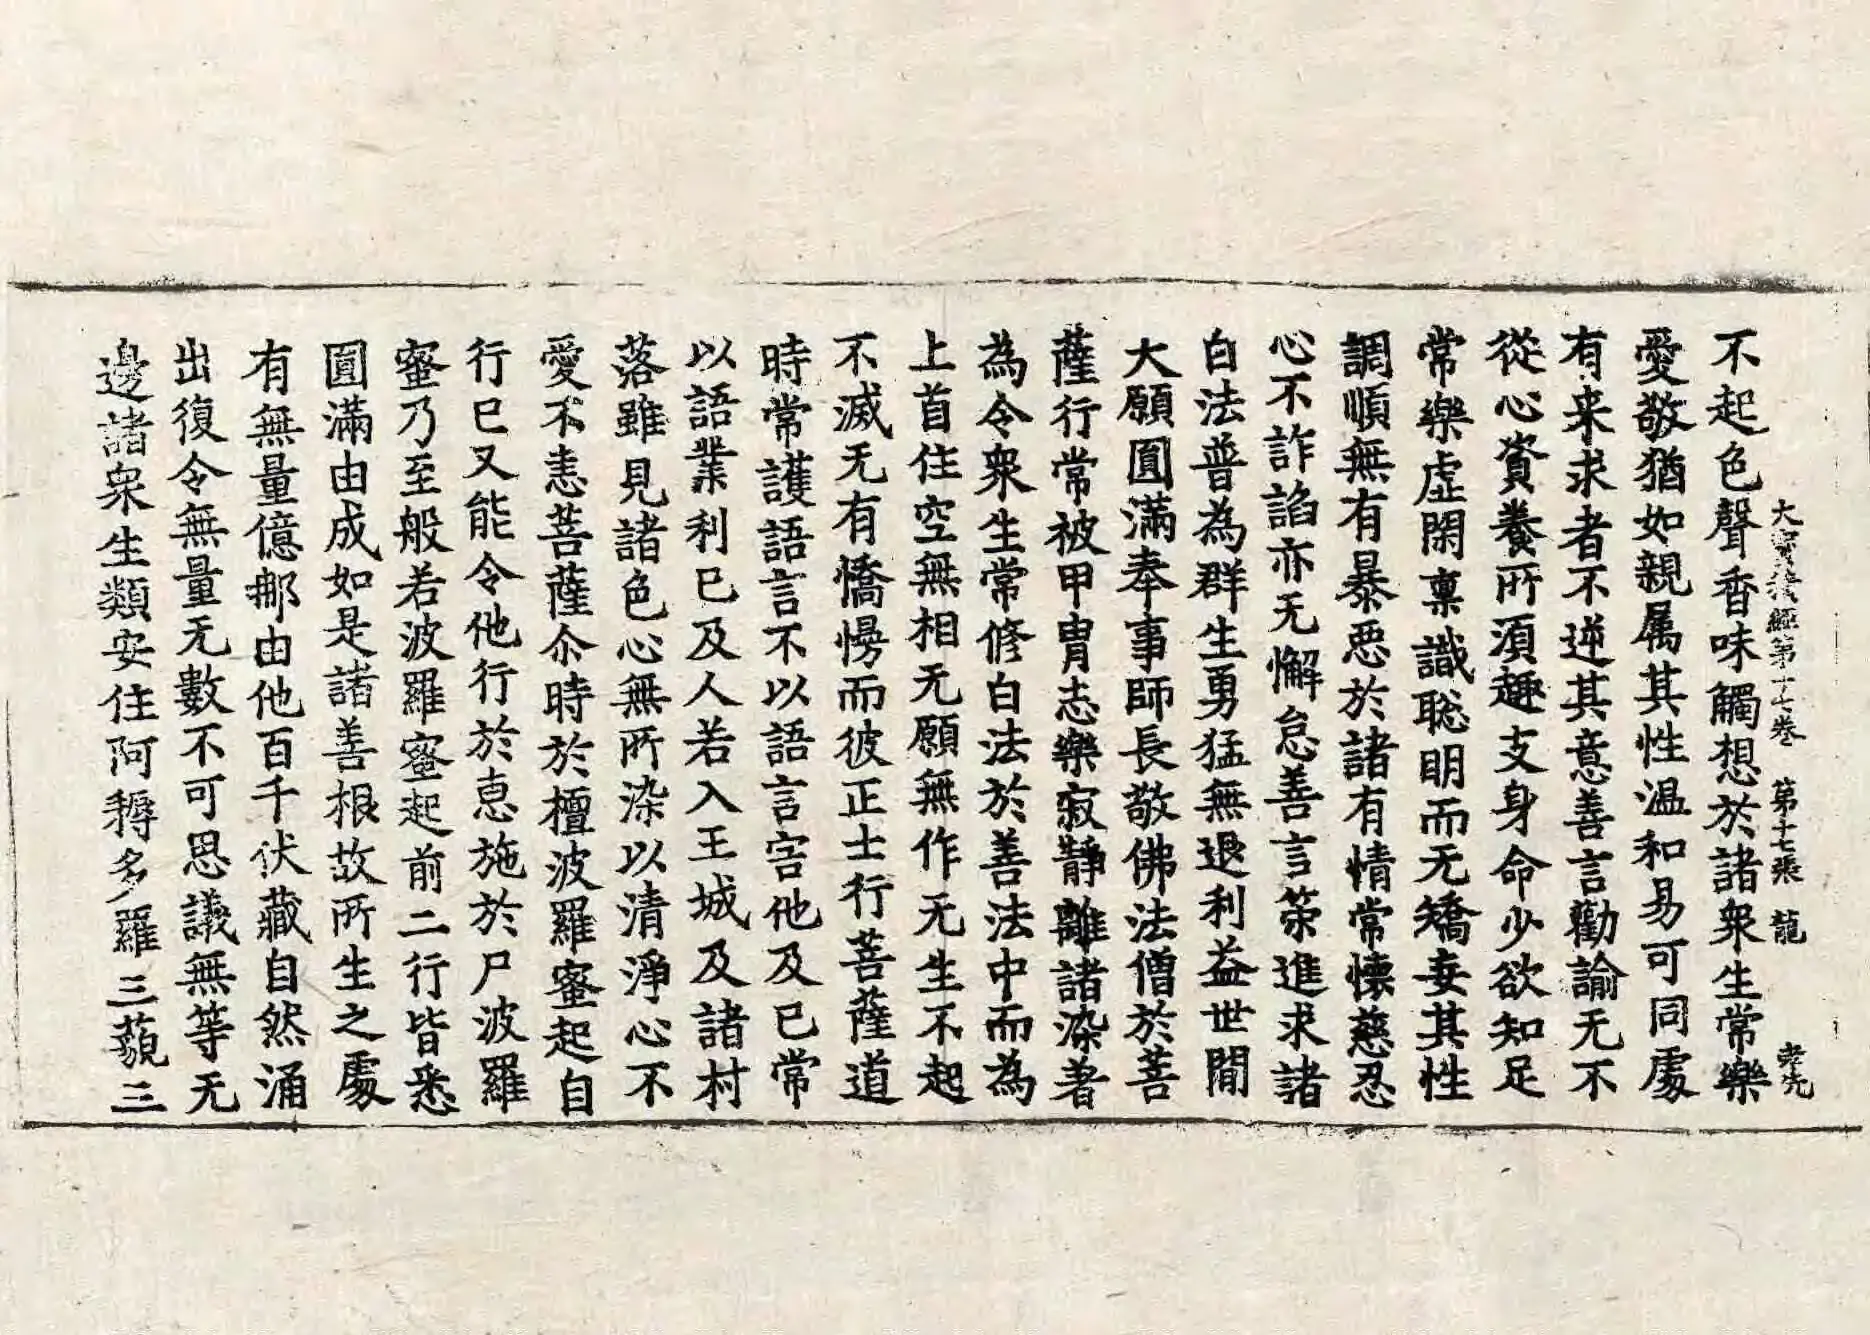 大寶積經第十七卷 第十七張 龍 孝先
不起色聲香味觸想於諸衆生常樂
愛敬猶如親属其性温和易可同處
有来求者不逆其意善言勸諭无不
從心資養所須趣支身命少欲知足
常樂虚閑稟識聡明而无矯妄其性
調順無有暴惡於諸有情常懷慈忍
心不詐諂亦无懈怠善言策進求諸
白法普為群生勇猛無退利益世間
大願圓滿奉事師長敬佛法僧於菩
薩行常被甲胄志樂寂靜離諸染著
為令衆生常修白法於善法中而為
上首住空無相无願無作无生不起
不滅无有憍慢而彼正士行菩薩道
時常護語言不以語言害他及已常
以語業利已及人若入王城及諸村
落雖見諸色心無所染以清淨心不
愛不恚菩薩尒時於檀波羅蜜起自
行已又能令他行於恵施於尸波羅
蜜乃至般若波羅蜜起前二行皆悉
圓滿由成如是諸善根故所生之處
有無量億那由他百千伏藏自然涌
出復令無量无數不可思議無等无
邊諸衆生類安住阿耨多羅三藐三